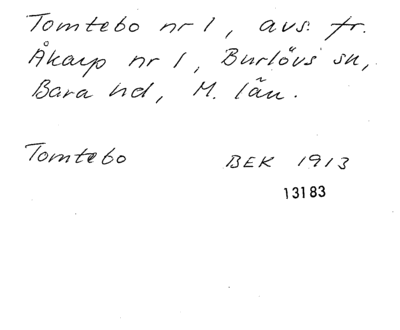 Tomtebo nr 1, avs. fr.
Åkarp nr 1, Burlövs sn,
Bara hd, M. län.
Tomtebo BEK 1913
13183